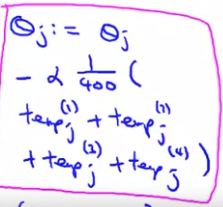 Θj := Θj
- α 1/400 (
tempj(1) + tempj(2)
+ tempj(3) + tempj(4) )